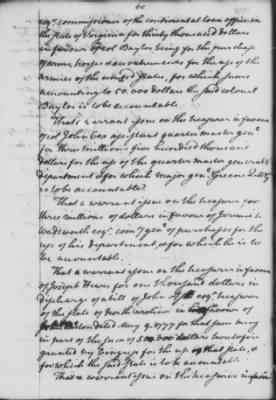 esqr. commissioner of the continental loan office in
the state of Virginia for thirty thousand dollars
in favour of col Baylor being for the purchase
of arms, horses & accoutrements for the use of the
armies of the united States, for which sums
amounting to 50.000 dollars the said colonel
Baylor is to be accountable
That a warrant issue on the treasurer in favour
of col John Cox assistant quarter master genl.
for three millions five hundred thousand
dollars for the use of the quarter master generals
department & for which major genl. Greene QMG
is to be accountable.
That a warrant issue on the treasurer for
three millions of dollars in favour of Jeremiah
Wadsworth esqr. comy genl. of purchases for the
use of his department, & for which he is to
be accountable.
That a warrant issue on the treasurer in favour
of Joseph Hewes for one thousand dollars in
discharge of a bill of John esqr. treasurer
of the state of North Carolina in favour of
dated May 9. 1777 for that sum being
in part of the sum of dollars heretofore
granted by Congress for the use of that state, &
for which the said State is to be accountable.
That a warrant issue on the treasurer in favour